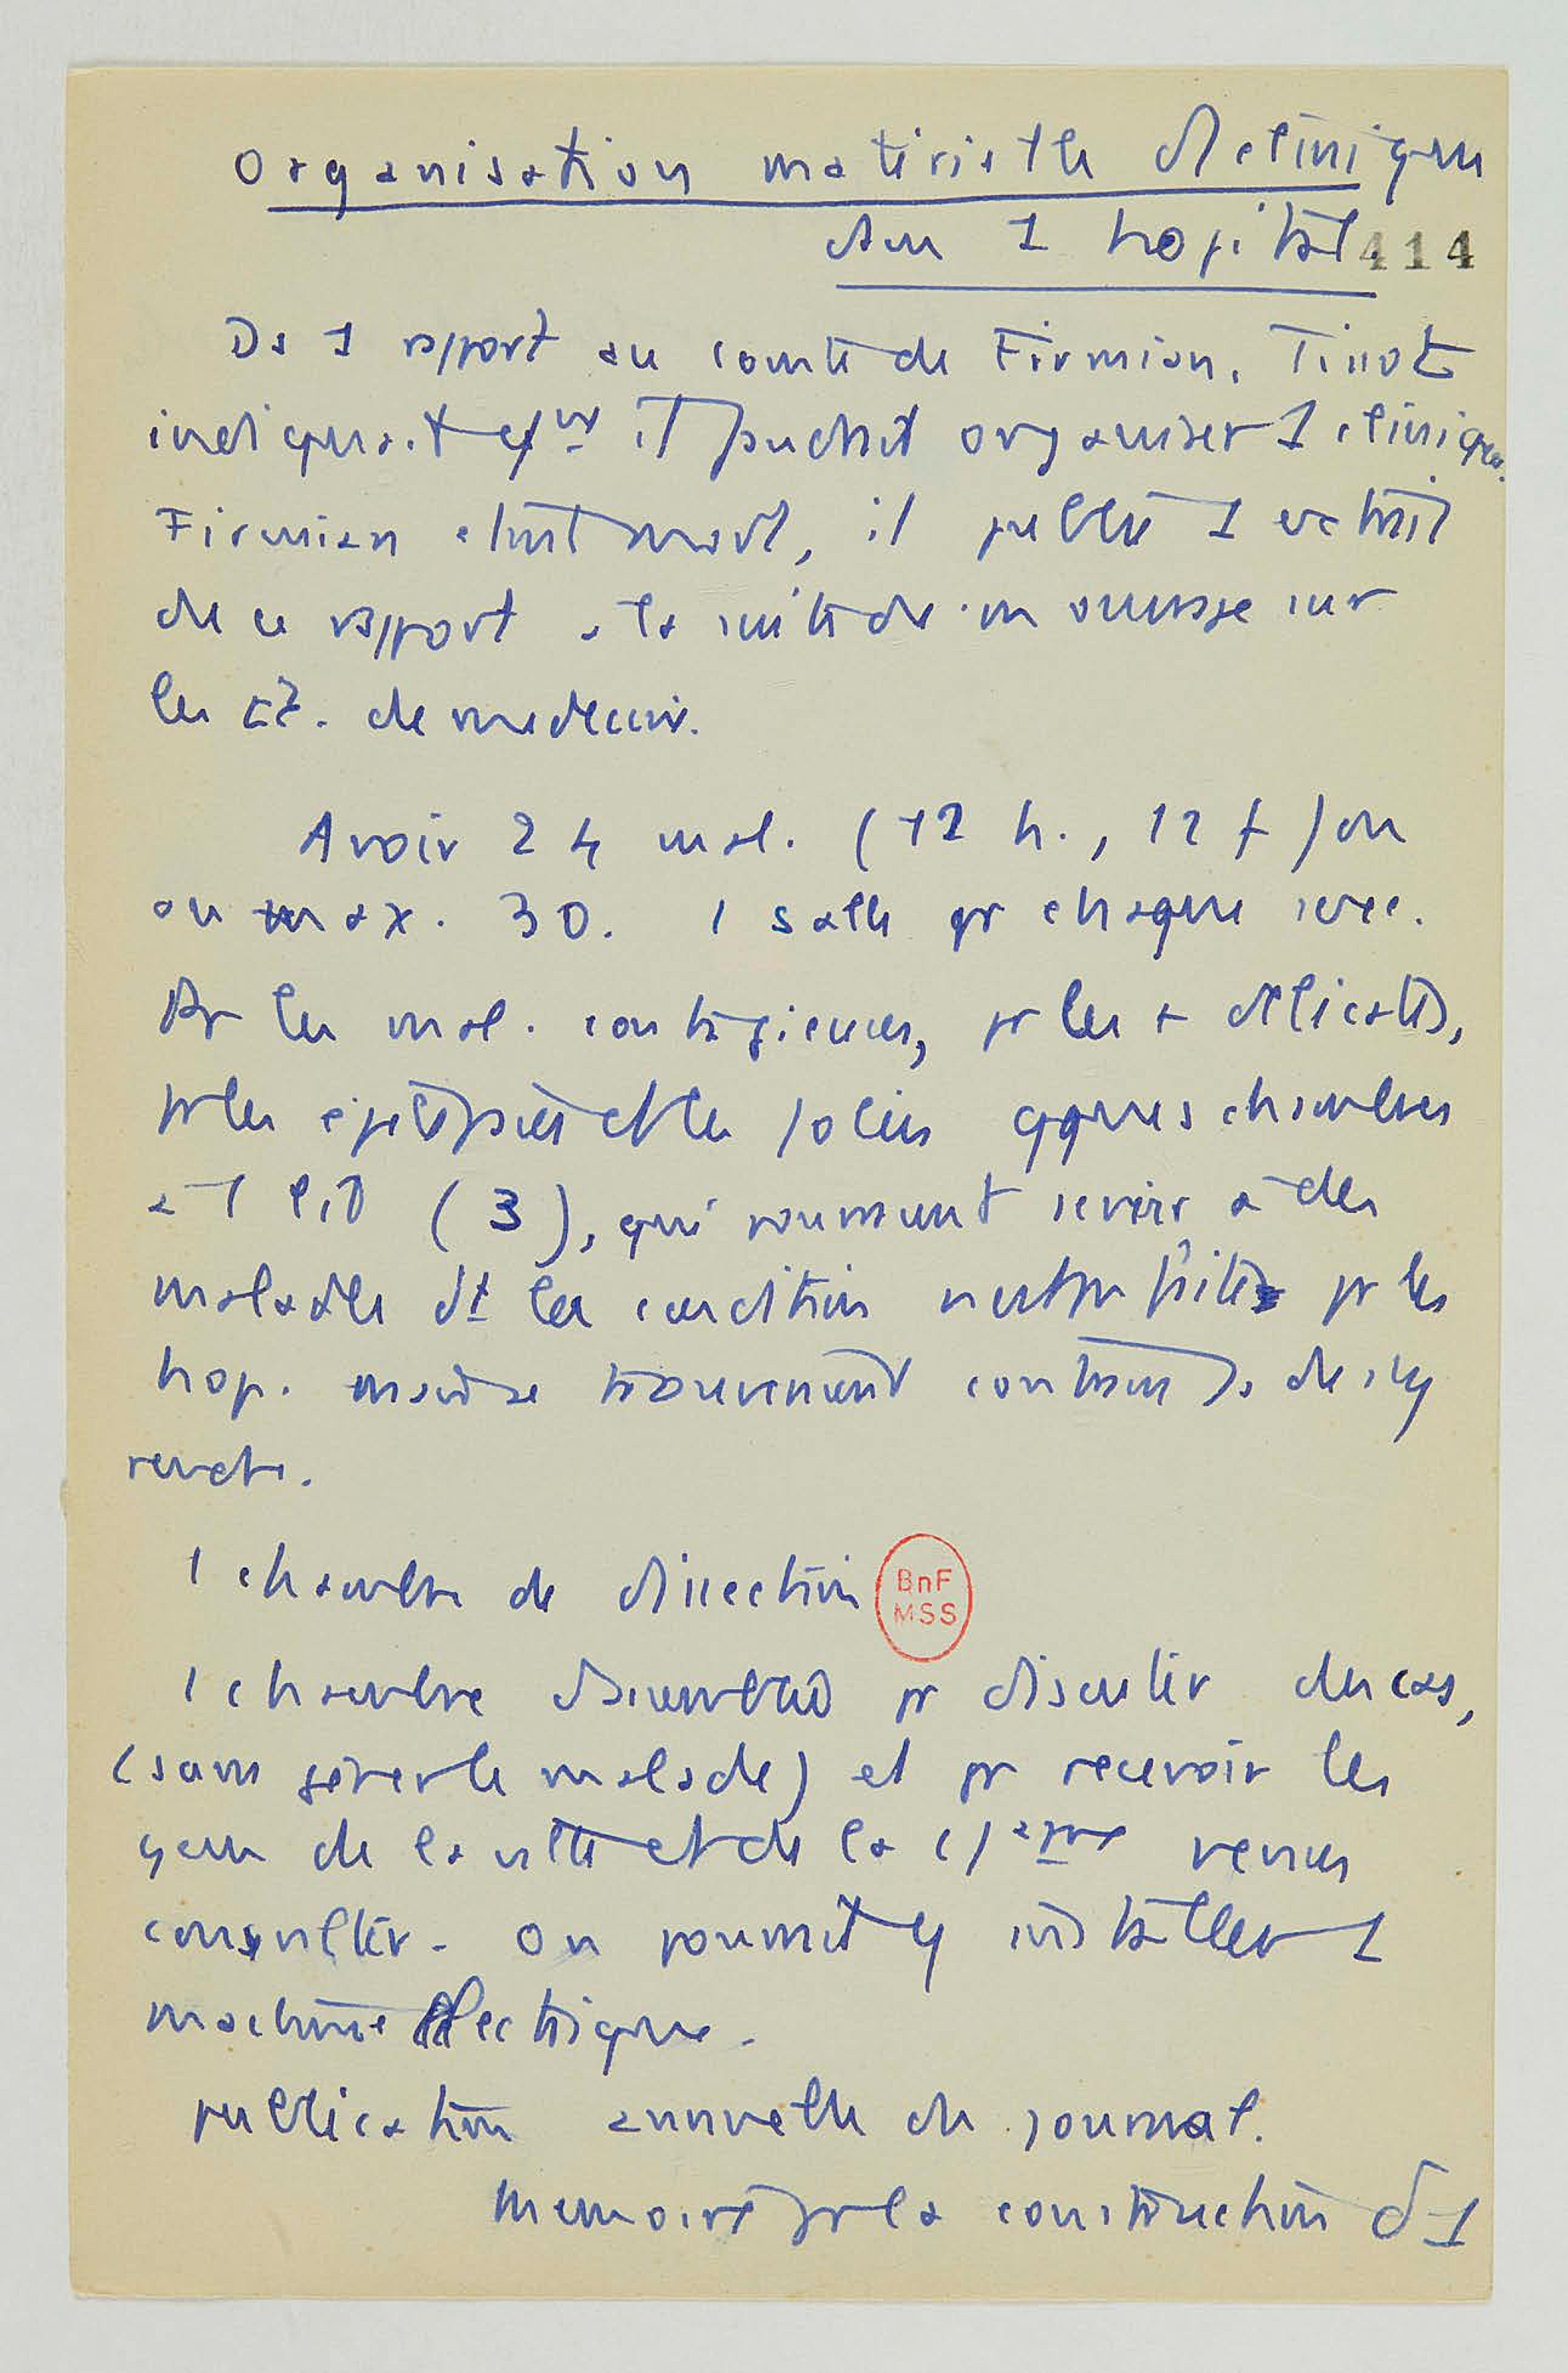 Organisation matérielle de clinique
ds 1 hopital
414
Ds 1 rapport au comte de Firmian, Tissot
indiquait qu' il faudrait organiser 1 clinique.
Firmian étant mort, il publie 1 extrait
de ce rapport à la suite de son ouvrage sur
les Et. de medecine.
Avoir 24 mal. (12 h., 12 f) ou
au max. 30. 1 salle pr chaque sexe.
Pr les mal. contagieuses, pr les + délicates,
pr les épileptiques et les folies qques chambres
à 1 lit (3), qui pourraient servir à des
malades dt la condition n'est pas faite pr les
hop. mais se trouveraient contraints de s'y
rendre.
1 chambre de dissection
1 chambre d'assemblée pr discuter des cas,
(sans gêner le malade) et pr recevoir les
gens de la ville et de la campagne venus
consulter. On pourrait y installer 1
machine électrique.
publication annuelle du journal.
Memoire pr la construction d'1